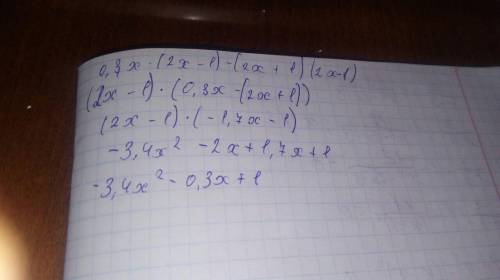 0,3x · (2x - 1) - (2x + 1)(2x-1)
(2x - 1) · (0,3x - (2x+1))
(2x - 1) · (-1,7x - 1)
-3,4x² - 2x + 1,7x + 1
-3,4x² - 0,3x + 1